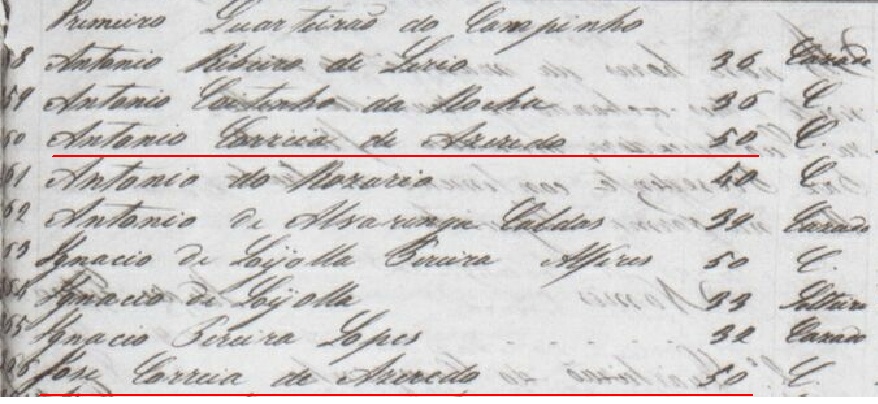 Primeiro Quarteirão do Campinho
58 Antonio Ribeiro de Lucio 36 Casado
59 Antonio Coitinho da Rocha 36 C.
60 Antonio Correia de Azeredo 50 C.
61 Antonio do Rozario 40 C
62 Antonio de Alvarenga Caldas 39 Casado
63 Ignacio de Lijolla Pereira Alferes 50 C.
64 Ignacio de Lijolla 33
65 Ignacio Pereira Lopes 32 Casado
66 Jose Correia de Azeredo 50 C.